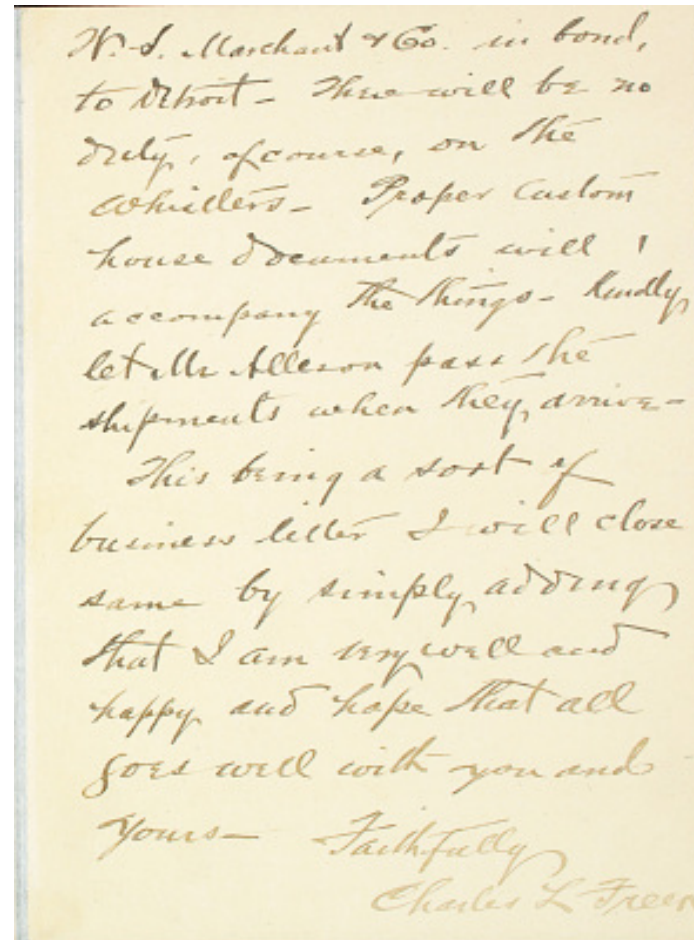 W. S. Marchant & Co. in bond,
to Detroit – There will be no
duty, of course, on the
Whistlers – Proper Custom
house documents will
accompany the things – Kindly
let Mr Alleson pass the
shipments when they arrive –
This being a sort of
business letter I will close
same by simply adding
that I am very well and
happy and hope that all
goes well with you and
yours – Faithfully
Charles L Freer